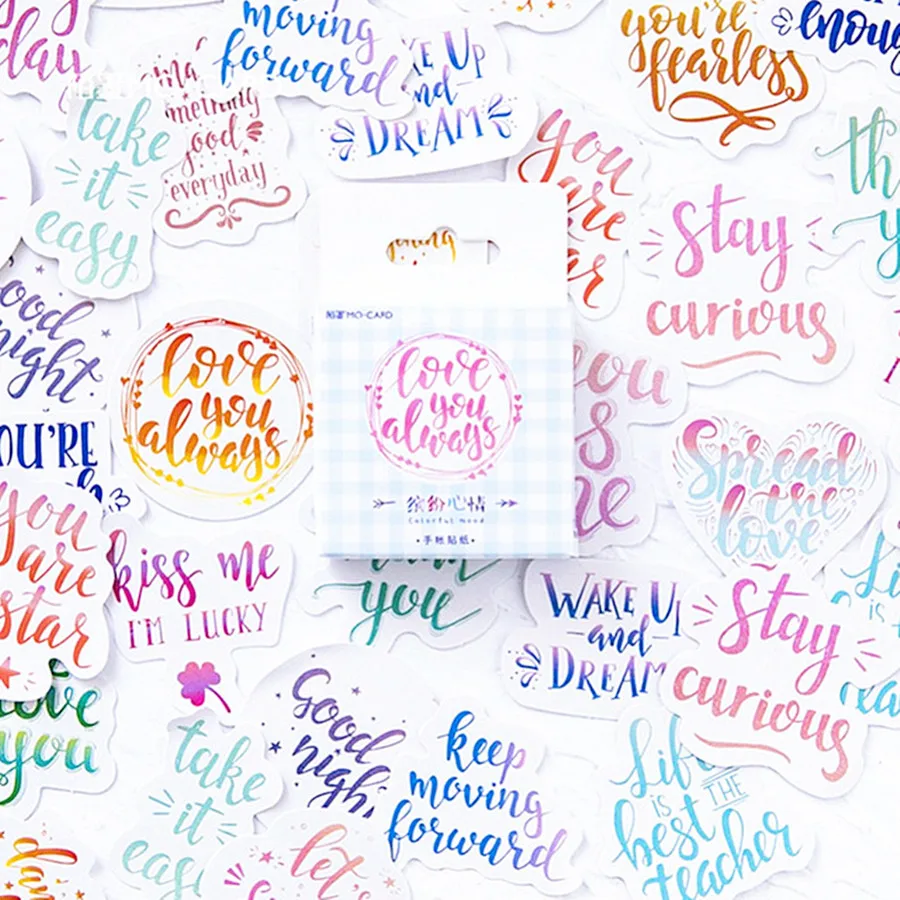 day
moving
forward
you're
fearless
enough
UP
DREAM
take
it
easy
good
everyday
you
are
Stay
curious
陌墨MO·CARD
love
you
always
love
you
always
缤纷心情
Colorful mood
·手帐贴纸·
good
night.
YOU'RE
you
are
star
kiss me
I'M LUCKY
you
Spread
the
love
WAKE UP
and
DREAM
Stay
curious
love
you
Good
night
take
it
easy
keep
moving
forward
Life
IS THE
best
teacher
let's